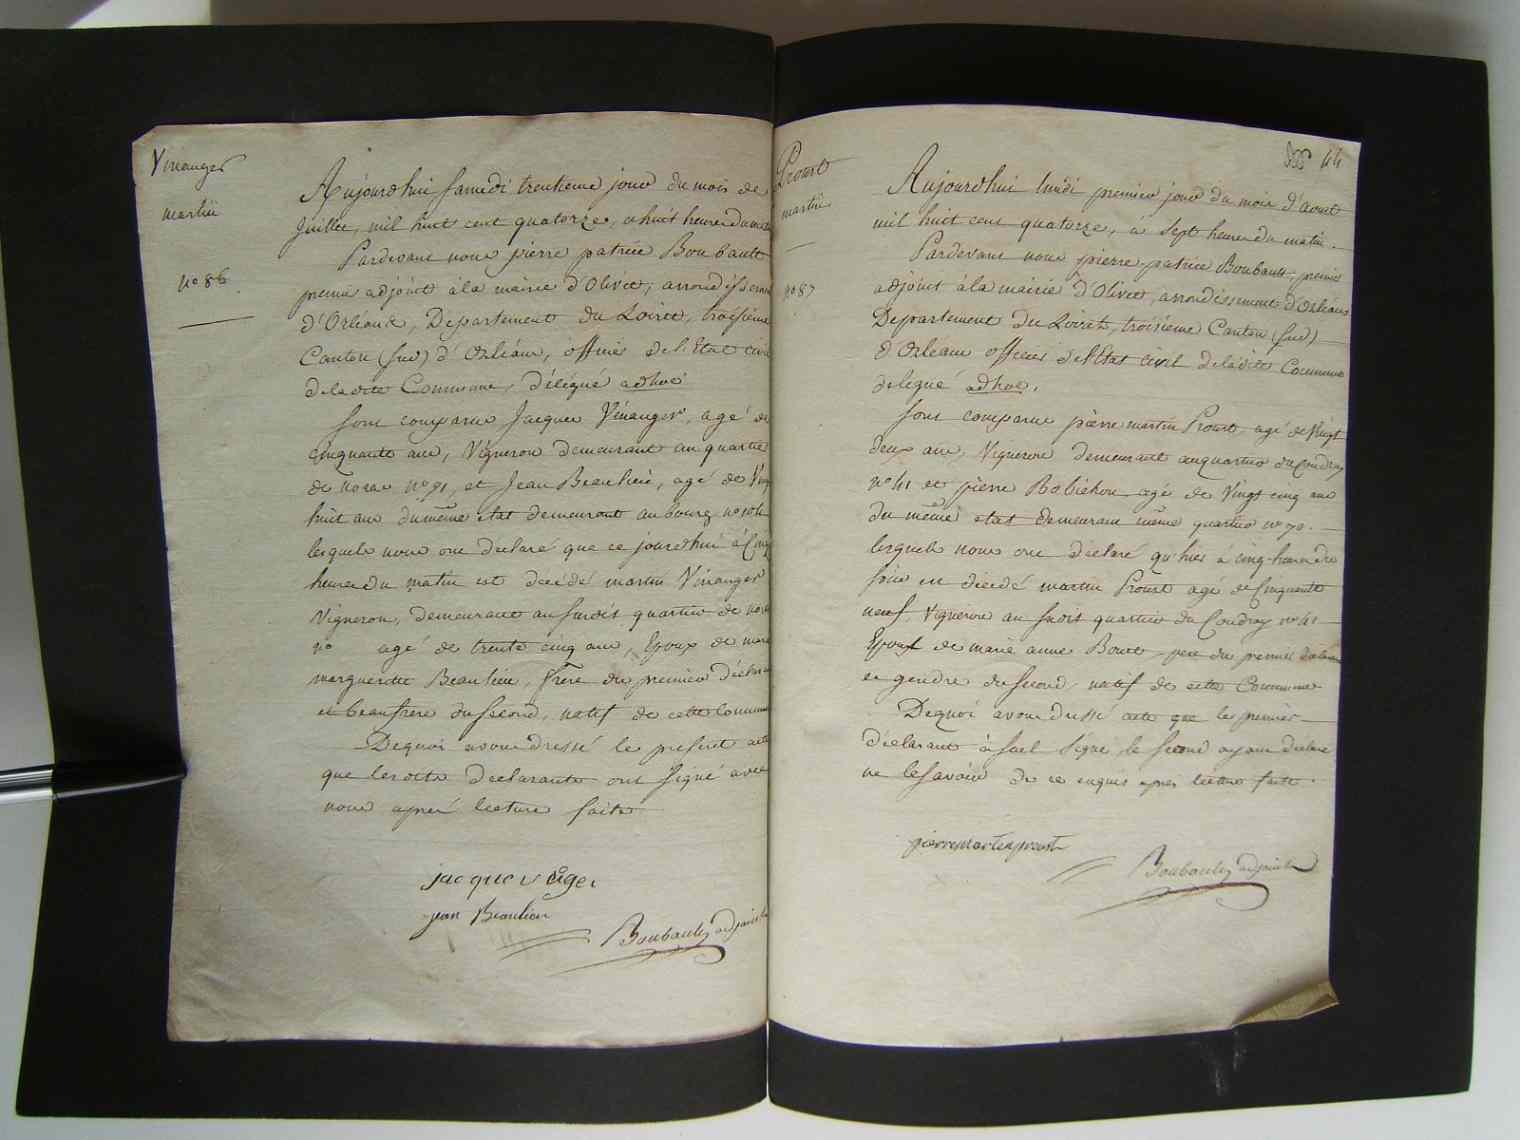 Vinanger
martin
n° 86
Aujourdhui Samedi trentieme jour du mois de
Juillet, mil huit cent quatorze, a huit heures du matin
Pardevant nous pierre patrice Boubault
premier adjoint à la mairie d'Olivet, arrondissement
d'Orléans, Departement du Loiret, troisieme
Canton (sud) d'Orléans, officier de l'Etat civil
de la dite Commune, délégué adhoc
Sont comparus Jacques Vinanger, agé de
cinquante ans, Vigneron demeurant au quartier
de n° 91, et Jean Beaulieu, agé de Vingt
huit ans du même etat demeurant au bourg n°
lesquels nous ont declaré que ce jourdhui à Cinq
heures du matin est decédé martin Vinanger
Vigneron, demeurant au susdit quartier de
n° agé de trente cinq ans, Epoux de marie
marguerite Beaulieu, frère du premier déclarant
et beaufrere du second, natif de cette Commune
Dequoi avons dressé le present acte
que les dits declarants ont signé avec
nous après lecture faite
jacque
jean Beaulieu
Boubault adjoint
Proust
martin
n° 87
44
Aujourdhui lundi premier jour du mois d'aout
mil huit cent quatorze, à sept heures du matin.
Pardevant nous pierre patrice Boubault, premier
adjoint à la mairie d'Olivet, arrondissement d'Orléans
Departement du Loiret, troisieme Canton (sud)
d'Orléans officier de l'Etat civil de la dite Commune
delegué adhoc.
Sont comparus pierre martin Proust, agé de Vingt
deux ans, Vigneron demeurant au quartier du Coudray
n° 41 et pierre Robichon agé de Vingt cinq ans
du même etat demeurant même quartier n° 70.
lesquels nous ont déclaré qu'hier à cinq heures du
soir est décédé martin Proust agé de Cinquante
neuf, Vigneron au susdit quartier du Coudray n° 41
Epoux de marie anne Bouet, pere du premier déclarant
et gendre du second, natif de cette Commune
Dequoi avons dressé acte que le premier
Déclarant à seul signé, le second ayant déclaré
ne le savoir de ce enquis après lecture faite.
pierre martin proust
Boubault adjoint